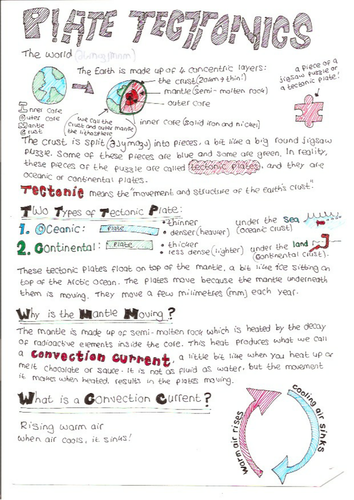 PLATE TECTONICS
The world
The Earth is made up of 4 concentric layers:
the crust (20km + thin!)
mantle (semi-molten rock)
outer core
inner core (solid iron and nickel)
a piece of a
jigsaw puzzle or
a tectonic plate!
Inner core
Outer core
Mantle
Crust
we call the
crust and outer mantle
the lithosphere
The crust is split into pieces, a bit like a big round jigsaw
puzzle. Some of these pieces are blue and some are green. In reality,
these pieces of the puzzle are called tectonic plates, and they are
oceanic or continental plates.
Tectonic means the "movement and structure of the Earth's crust".
Two Types of Tectonic Plate:
1. Oceanic: Plate • thinner under the Sea
• denser (heavier) (oceanic crust)
2. Continental: Plate • thicker under the land
• less dense (lighter) (continental crust).
These tectonic plates float on top of the mantle, a bit like ice sitting on
top of the Arctic Ocean. The plates move because the mantle underneath
them is moving. They move a few milimetres (mm) each year.
Why is the Mantle Moving?
The mantle is made up of semi-molten rock which is heated by the decay
of radioactive elements inside the core. This heat produces what we call
a convection current, a little bit like when you heat up or
melt chocolate or sauce. It is not as fluid as water, but the movement
it makes when heated, results in the plates moving.
What is a Convection Current?
Rising warm air
when air cools, it sinks!
warm air rises
cooling air sinks